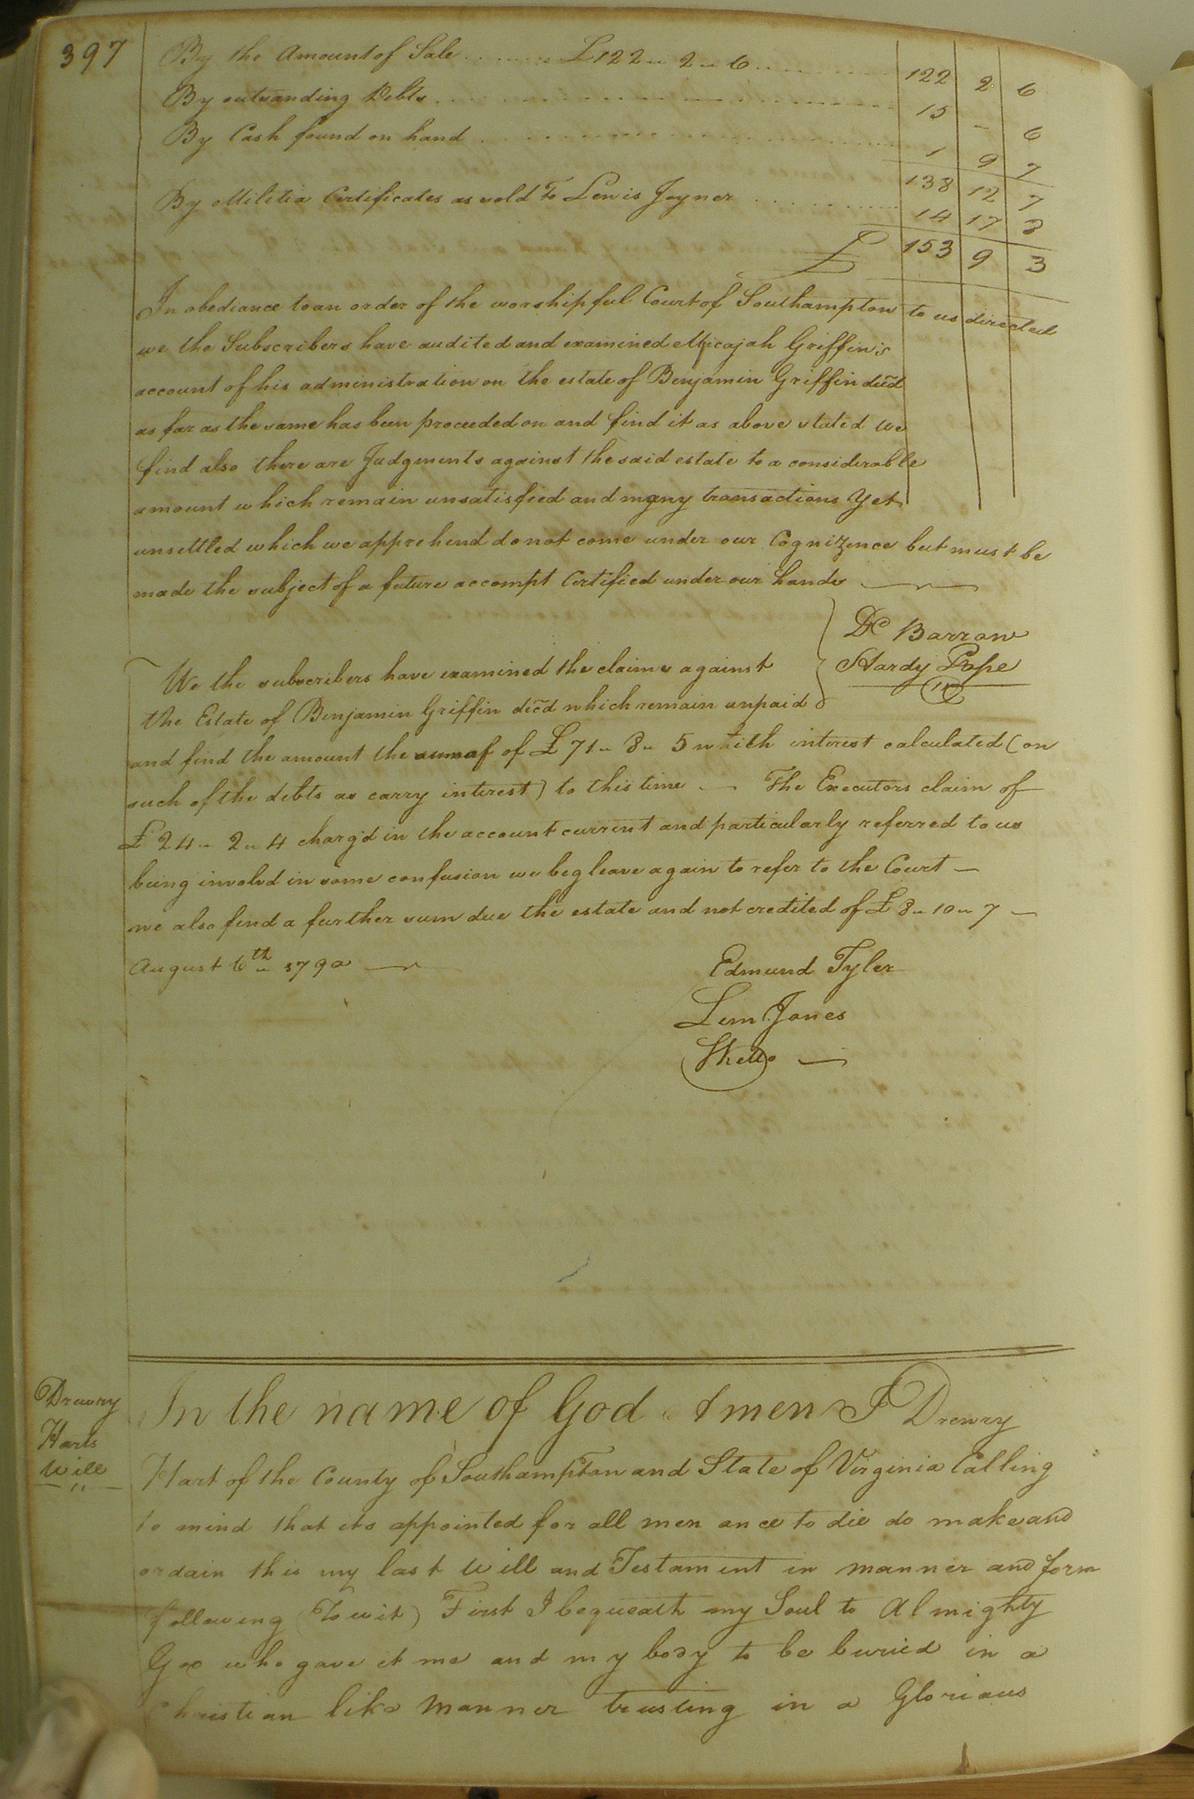 397
By the Amount of Sale ........ £122 " 2 " 6 ........ 122 2 6
By outstanding Debts ........ 15 - 6
By Cash found on hand ........ 1 9 7
138 12 7
By Militia Certificates as sold To Lewis Joyner ........ 14 17 8
£ 153 9 3
In obediance to an order of the worshipful Court of Southampton to us directed
we the Subscribers have audited and examined Micajah Griffin's
account of his administration on the estate of Benjamin Griffin decd
as far as the same has been proceeded on and find it as above stated we
find also there are Judgments against the said estate to a considerable
amount which remain unsatisfied and many transactions yet
unsettled which we apprehend do not come under our Cognizence but must be
made the subject of a future accompt Certified under our hands
Dd Barrow
Hardy Pope
We the subscribers have examined the claims against
the Estate of Benjamin Griffin decd which remain unpaid
and find the amount the sum of of £ 71 " 8 " 5 with interest calculated (on
such of the debts as carry interest) to this time — The Executors claim of
£ 24 " 2 " 4 charg'd in the account current and particularly referred to us
being involvd in some confusion we beg leave again to refer to the Court —
we also find a further sum due the estate and not credited of £ 8 " 10 " 7 —
August 6th 1790 —
Edmund Tyler
Lem Jones
Drewry
Harts
Will
In the name of God Amen I Drewry
Hart of the County of Southampton and State of Virginia Calling
to mind that its appointed for all men once to die do make and
ordain this my last Will and Testament in manner and form
following (To wit) First I bequeath my Soul to Almighty
God who gave it me and my body to be buried in a
Christian like manner trusting in a Glorious